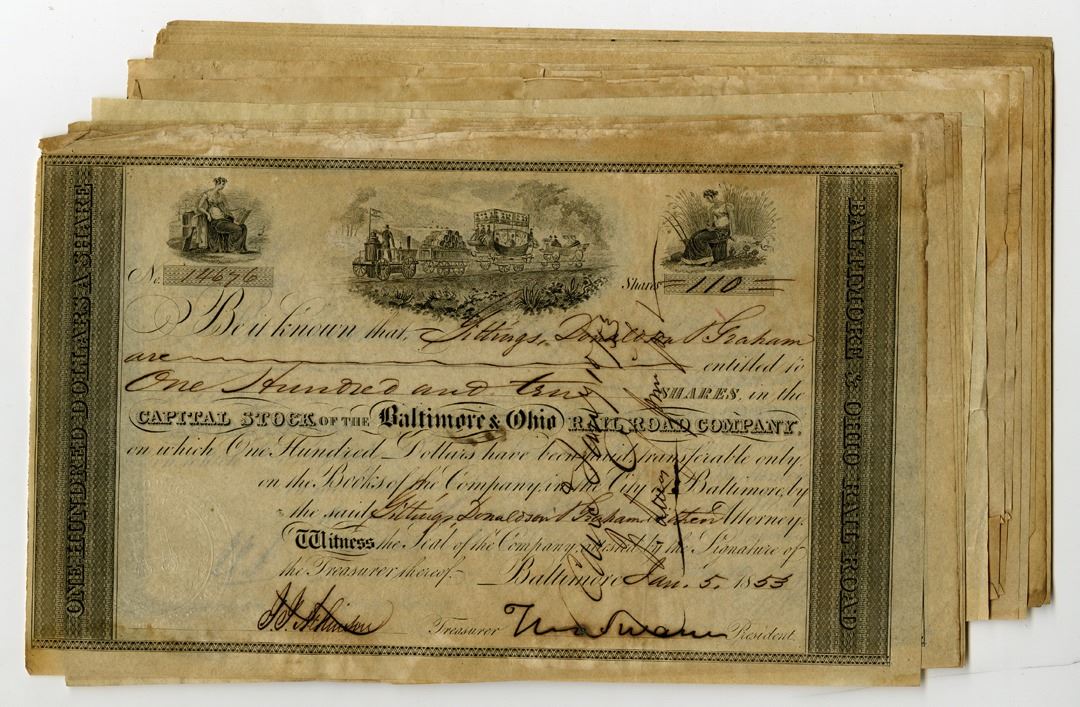 ONE HUNDRED DOLLARS A SHARE
BALTIMORE & OHIO RAIL ROAD
No. 14676
Shares 110
Be it known that, Gittings, Donaldson & Graham
are entitled to
One Hundred and ten SHARES, in the
CAPITAL STOCK OF THE Baltimore & Ohio RAIL ROAD COMPANY,
on which One Hundred Dollars have been paid transferable only
on the Books of the Company, in the City of Baltimore, by
the said Gittings Donaldson & Graham or their Attorney.
Witness the Seal of the Company, attested by the Signature of
the Treasurer thereof. Baltimore Jan. 5. 1853
J. J. Atkinson Treasurer Tho Swann President.